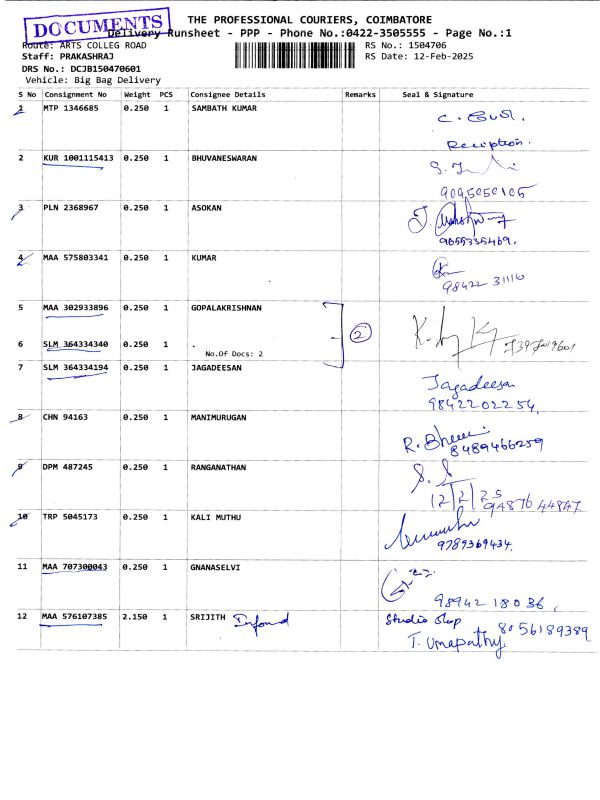 DOCUMENTS
THE PROFESSIONAL COURIERS, COIMBATORE
Delivery Runsheet - PPP - Phone No.:0422-3505555 - Page No.:1
Route: ARTS COLLEG ROAD RS No.: 1504706
Staff: PRAKASHRAJ RS Date: 12-Feb-2025
DRS No.: DCJB150470601
Vehicle: Big Bag Delivery
S No Consignment No Weight PCS Consignee Details Remarks Seal & Signature
1 MTP 1346685 0.250 1 SAMBATH KUMAR
Reception.
2 KUR 1001115413 0.250 1 BHUVANESWARAN
9095050105
3 PLN 2368967 0.250 1 ASOKAN
9055335469.
4 MAA 575803341 0.250 1 KUMAR
98422 31110
5 MAA 302933896 0.250 1 GOPALAKRISHNAN
2
6 SLM 364334340 0.250 1 .
No.Of Docs: 2
7 SLM 364334194 0.250 1 JAGADEESAN
Jagadeesan
9842202254.
8 CHN 94163 0.250 1 MANIMURUGAN
8489466259
9 DPM 487245 0.250 1 RANGANATHAN
12/2/25
94876 44847
10 TRP 5045173 0.250 1 KALI MUTHU
9789369434.
11 MAA 707300043 0.250 1 GNANASELVI
98942 18036.
12 MAA 576107385 2.150 1 SRIJITH Studio Shop
8056189389
T. Umapathy